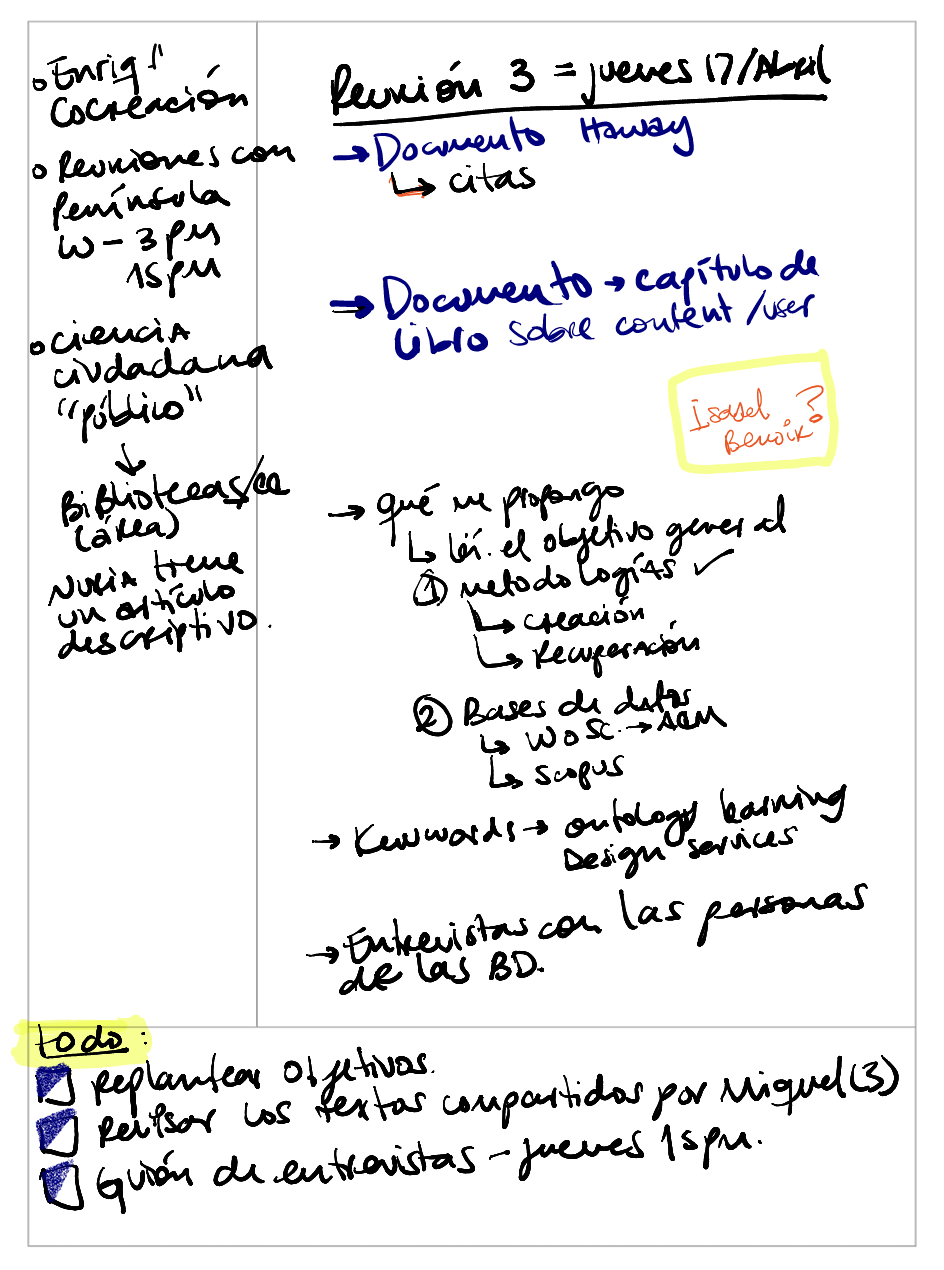 o Enriq
Cocreación
o Reuniones con
Península
W - 3 pm
15 pm
o ciencia
ciudadana
"público"
↓
Bibliotecas/cc
(área)
Nuria tiene
un artículo
descriptivo.
Reunión 3 = jueves 17/Abril
→ Documento Haway
↳ citas
→ Documento → capítulo de
libro sobre content / user
Isabel ?
Benoix
→ qué me propongo
↳ el objetivo general
① metodologías ✓
↳ creación
↳ Recuperación
② Bases de datos
↳ WOSC. → ACM
↳ Scopus
→ Kewwords → ontology learning
Design services
→ Entrevistas con las personas
de las BD.
todo:
Replantear Objetivos.
Revisar los textos compartidos por Miguel (3)
Guión de entrevistas - jueves 15 pm.